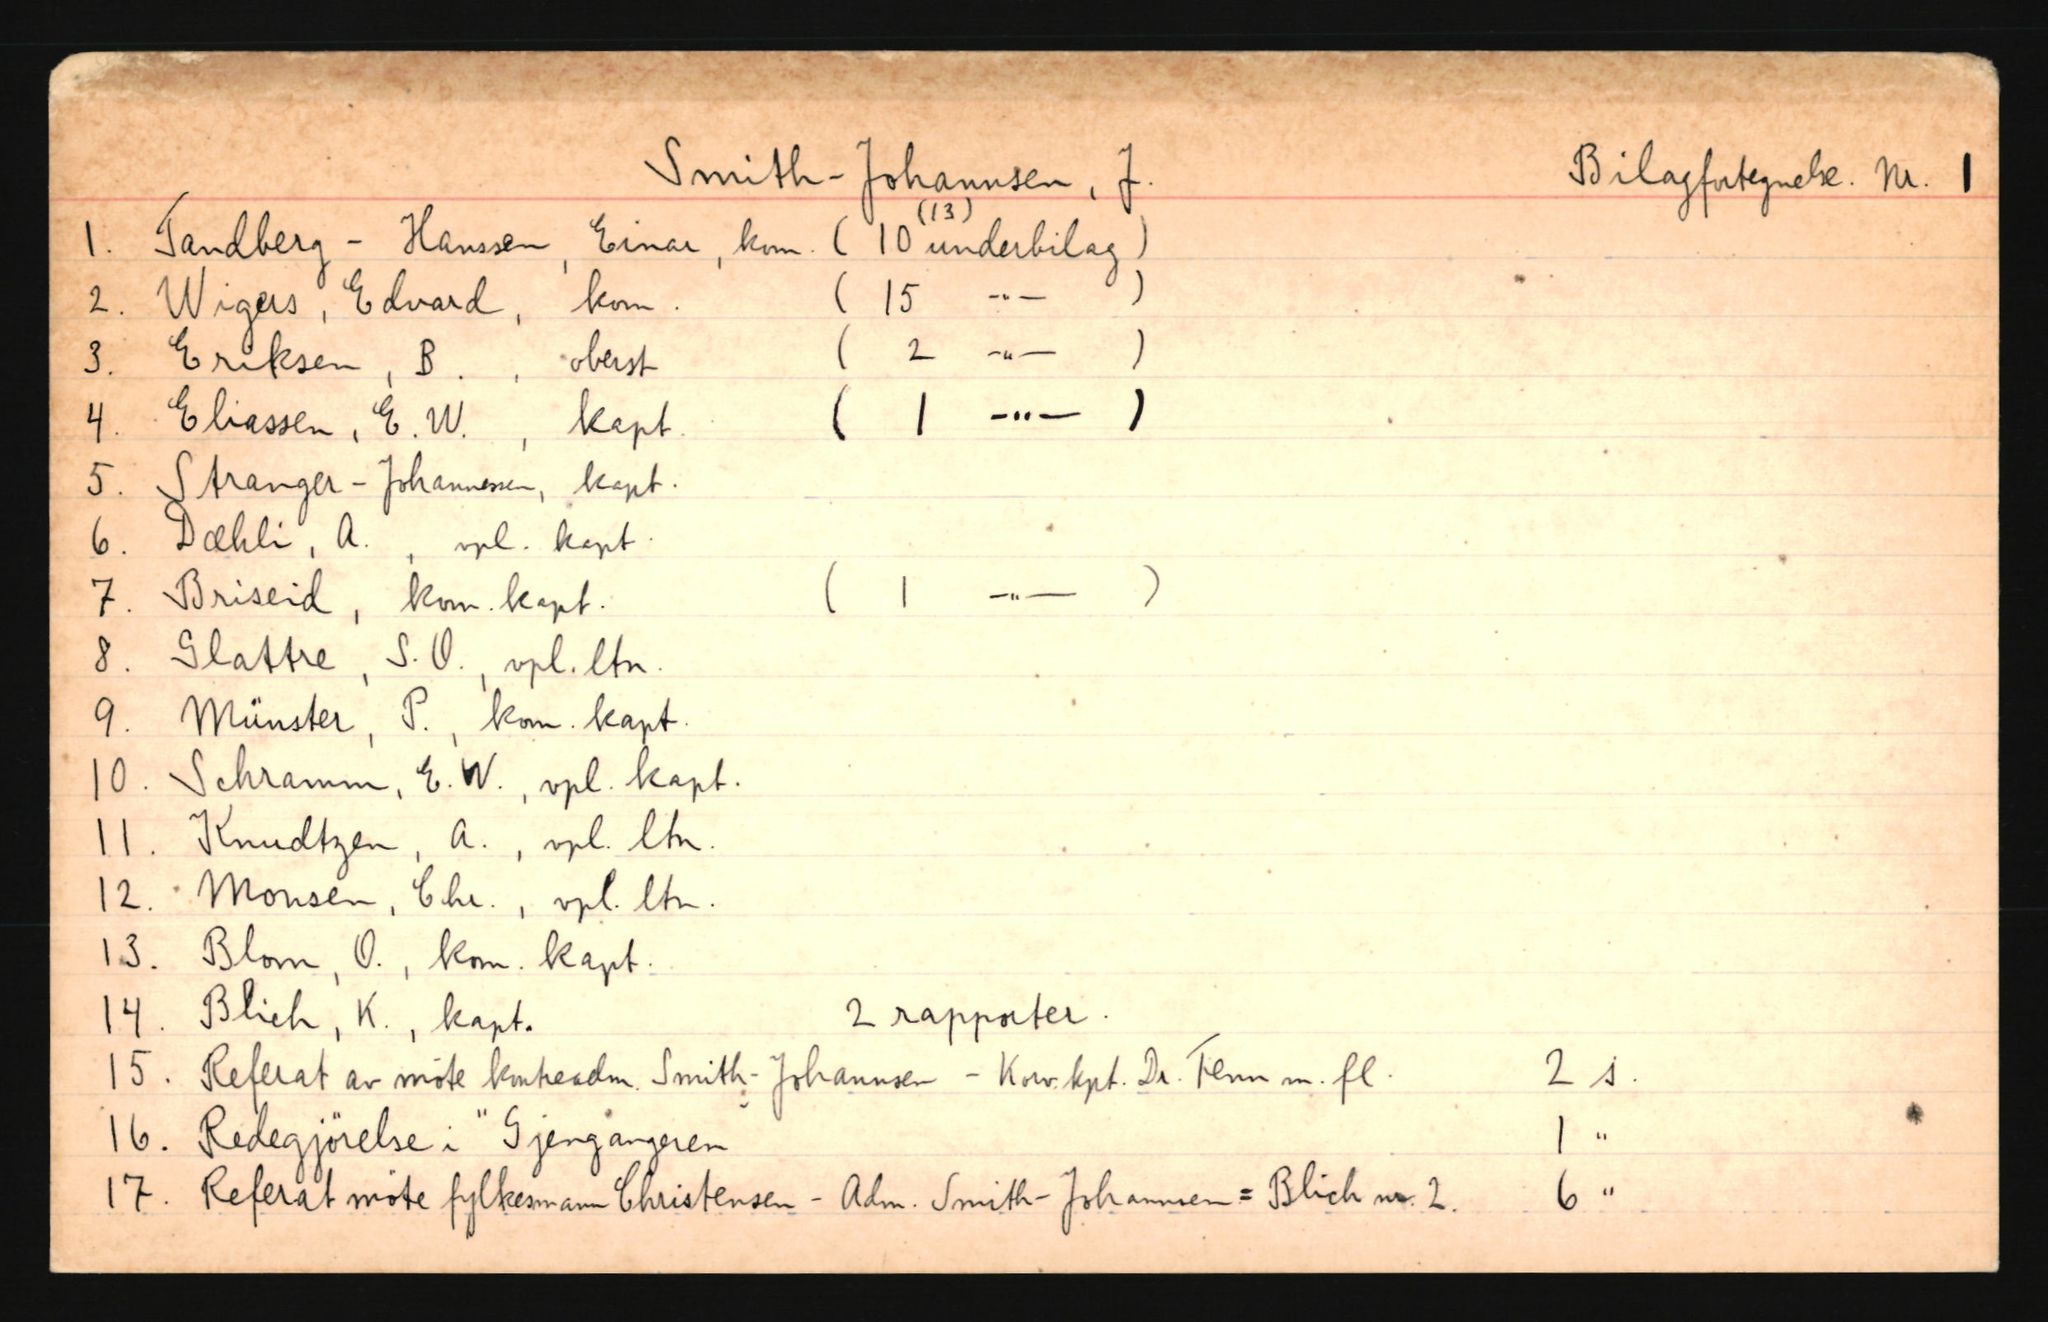 Smith-Johannsen, J. Bilagfortegnelse. Nr. 1
(13)
1. Tandberg - Hanssen, Einar, kom. ( 10 underbilag )
2. Wigers, Edvard, kom. ( 15 -"- )
3. Eriksen, B., oberst ( 2 -"- )
4. Eliassen, E.W., kapt. ( 1 -"- )
5. Stranger-Johannessen, kapt.
6. Dæhli, A., vpl. kapt.
7. Briseid, kom. kapt. ( 1 -"- )
8. Glattre, S.O., vpl. ltn.
9. Münster, P., kom. kapt.
10. Schramm, E.W., vpl. kapt.
11. Knudtzen, A., vpl. ltn.
12. Monsen, Chr., vpl. ltn.
13. Blom, O., kom. kapt.
14. Blich, K., kapt. 2 rapporter.
15. Referat av möte kontreadm. Smith-Johannsen - Kow.kpt. Dr. Fenn m. fl. 2 s.
16. Redegjörelse i "Gjengangeren 1 "
17. Referat möte fylkesmann Christensen - Adm. Smith-Johannsen = Blich nr. 2. 6 "